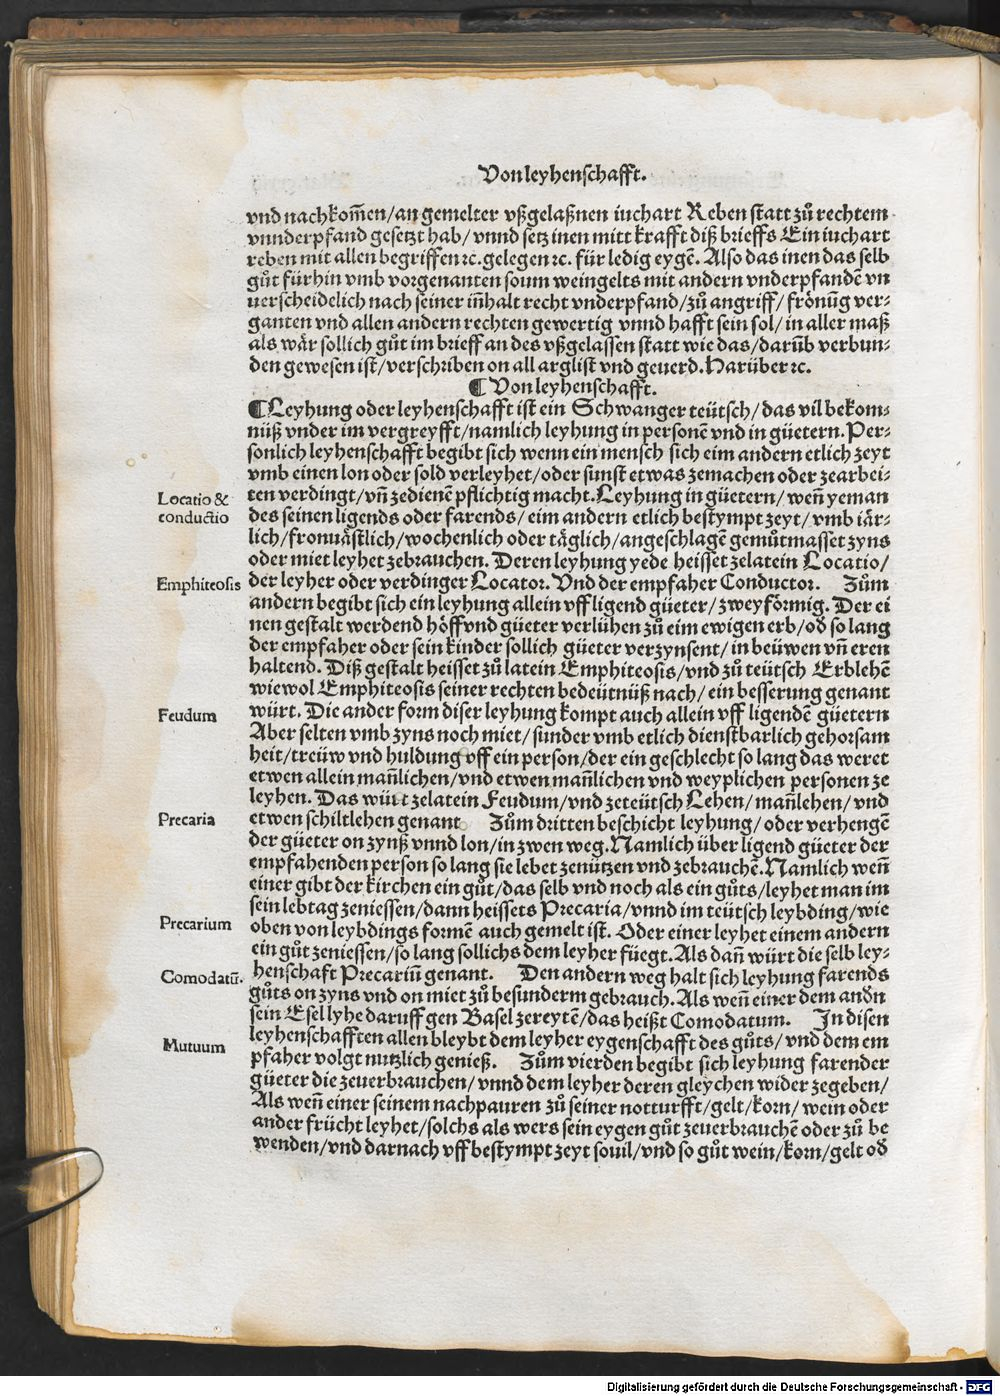 Von leyhenschafft.
vnd nachkom̄en/an gemelter vßgelaßnen iuchart Reben statt zů rechtem
vnnderpfand gesetzt hab/ vnnd setz inen mitt krafft diß brieffs Ein iuchart
reben mit allen begriffen ⁊c. gelegen ⁊c. für ledig eygē. Also das inen das selb
gůt fürhin vmb vorgenanten soum weingelts mit andern vnderpfandē vn
uerscheidelich nach seiner iñhalt recht vnderpfand/zů angriff/frönūg ver⸗
ganten vnd allen andern rechten gewertig vnnd hafft sein sol/in aller maß
als wår sollich gůt im brieff an des vßgelassen statt wie das/darūb verbun⸗
den gewesen ist/verschriben on all arglist vnd geuerd. Harüber ⁊c.
¶ Von leyhenschafft.
¶Leyhung oder leyhenschafft ist ein Schwanger teütsch/das vil bekom⸗
nüß vnder im vergreyfft/namlich leyhung in personē vnd in güetern. Per⸗
sonlich leyhenschafft begibt sich wenn ein mensch sich eim andern etlich zeyt
vmb einen lon oder sold verleyhet/oder sunst etwas zemachen oder zearbei⸗
ten verdingt/vñ zedienē pflichtig macht. Leyhung in güetern/ weñ yeman
des seinen ligends oder farends/ eim andern etlich bestympt zeyt/vmb iår⸗
lich/fronuåstlich/wochenlich oder täglich/angeschlagē gemůtmasset zyns
oder miet leyhet zebrauchen. Deren leyhung yede heisset zelatein Locatio/
der leyher oder verdinger Locator. Vnd der empfaher Conductor. Zům
andern begibt sich ein leyhung allein vff ligend güeter/zweyförmig. Der ei
nen gestalt werdend höff vnd güeter verlühen zů eim ewigen erb/od̄ so lang
der empfaher oder sein kinder sollich güeter verzynsent/in beüwen vñ eren
haltend. Diß gestalt heisset zů latein Emphiteosis/vnd zů teütsch Erblehē
wiewol Emphiteosis seiner rechten bedeütnüß nach/ein besserung genant
würt. Die ander form diser leyhung kompt auch allein vff ligendē güetern
Aber selten vmb zyns noch miet/sunder vmb etlich dienstbarlich gehorsam
heit/treüw vnd huldung vff ein person/der ein geschlecht so lang das weret
etwen allein mañlichen/vnd etwen mañlichen vnd weyplichen personen ze
leyhen. Das würt zelatein Feudum/vnd zeteütsch Lehen/mañlehen/vnd
etwen schiltlehen genant Zům dritten beschicht leyhung/oder verhengē
der güeter on zynß vnnd lon/in zwen weg. Namlich über ligend güeter der
empfahenden person so lang sie lebet zenützen vnd zebrauchē. Namlich weñ
einer gibt der kirchen ein gůt/das selb vnd noch als ein gůts/leyhet man im
sein lebtag zeniessen/dann heissets Precaria/vnnd im teütsch leybding/wie
oben von leybdings formē auch gemelt ist. Oder einer leyhet einem andern
ein gůt zeniessen/so lang sollichs dem leyher füegt. Als dañ würt die selb ley⸗
henschaft Precariū genant. Den andern weg halt sich leyhung farends
gůts on zyns vnd on miet zů besunderm gebrauch. Als weñ einer dem andn̄
sein Esel lyhe daruff gen Basel zereytē/das heißt Comodatum. In disen
leyhenschafften allen bleybt dem leyher eygenschafft des gůts/vnd dem em
pfaher volgt nutzlich genieß. Zům vierden begibt sich leyhung farender
güeter die zeuerbrauchen/vnnd dem leyher deren gleychen wider zegeben/
Als weñ einer seinem nachpauren zů seiner notturfft/gelt/korn/wein oder
ander frücht leyhet/solchs als wers sein eygen gůt zeuerbrauchē oder zů be
wenden/vnd darnach vff bestympt zeyt souil/vnd so gůt wein/korn/gelt od̄
Locatio &
conductio
Emphiteosis
Feudum
Precaria
Precarium
Comodatū.
Mutuum
Digitalisierung gefördert durch die Deutsche Forschungsgemeinschaft - DFG